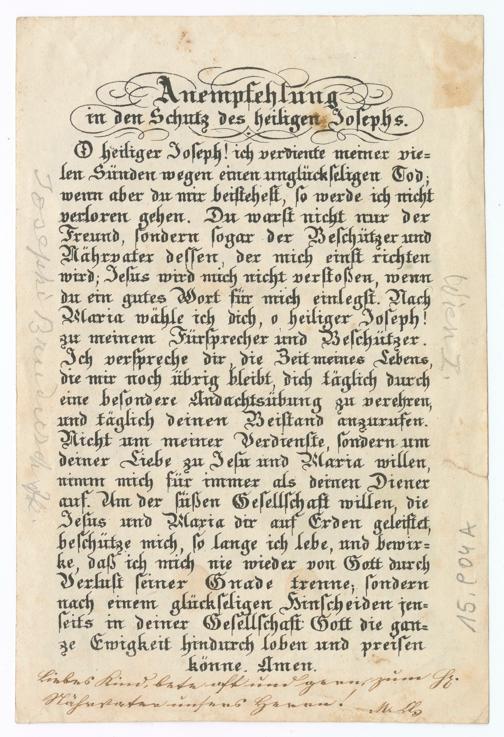 Anempfehlung
in den Schutz des heiligen Josephs.
O heiliger Joseph! ich verdiente meiner vie-
len Sünden wegen einen unglückseligen Tod;
wenn aber du mir beistehest, so werde ich nicht
verloren gehen. Du warst nicht nur der
Freund, sondern sogar der Beschützer und
Nährvater dessen, der mich einst richten
wird; Jesus wird mich nicht verstoßen, wenn
du ein gutes Wort für mich einlegst. Nach
Maria wähle ich dich, o heiliger Joseph!
zu meinem Fürsprecher und Beschützer.
Ich verspreche dir, die Zeit meines Lebens,
die mir noch übrig bleibt, dich täglich durch
eine besondere Andachtsübung zu verehren,
und täglich deinen Beistand anzurufen.
Nicht um meiner Verdienste, sondern um
deiner Liebe zu Jesu und Maria willen,
nimm mich für immer als deinen Diener
auf. Um der süßen Gesellschaft willen, die
Jesus und Maria dir auf Erden geleistet,
beschütze mich, so lange ich lebe, und bewir-
ke, daß ich mich nie wieder von Gott durch
Verlust seiner Gnade trenne; sondern
nach einem glückseligen Hinscheiden jen-
seits in deiner Gesellschaft Gott die gan-
ze Ewigkeit hindurch loben und preisen
könne. Amen.
Liebes Kind, bete oft und gern zum Hl.
Nährvater unsers Herrn!
Wien I.
15.804A